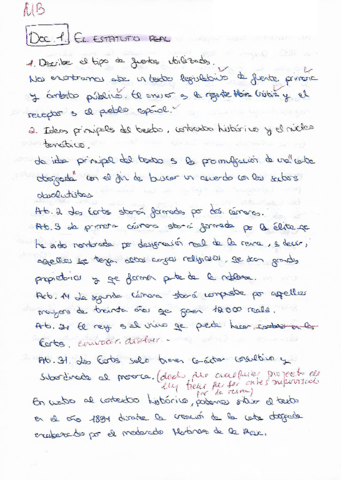 MB
Doc 1. EL ESTATUTO REAL
1. Describe el tipo de fuentes utilizados.
Nos encontramos ante un texto legislativo de fuente primaria
y ámbito público. El emisor es la regente María Cristina y el
receptor es el pueblo español.
2. Ideas principales del texto, contexto histórico y el núcleo
temático.
La idea principal del texto es la promulgación de una "carta
otorgada" con el fin de buscar un acuerdo con los
absolutistas
Art. 2 las Cortes estarán formadas por dos cámaras.
Art. 3 La primera cámara estará formada por la élite
ha sido nombrada por designación real de la reina, es decir,
aquellos que tengan altos cargos religiosos, que sean grandes
propietarios y que formen parte de la nobleza.
Art. 14 La segunda cámara estará compuesta por aquellos
mayores de treinta años que ganen 12000 reales.
Art. 24 El rey es el único que puede
Cortes, convocar, disolver.
Art. 31. Las Cortes solo tienen carácter consultivo y
subordinado al monarca. (decir que cualquier proyecto de
ley tiene que ser antes supervisado
por la reina)
En cuanto al contexto histórico, podemos situar el texto
en el año 1834 durante la creación de la carta otorgada
por el moderado Martínez de la Rosa.